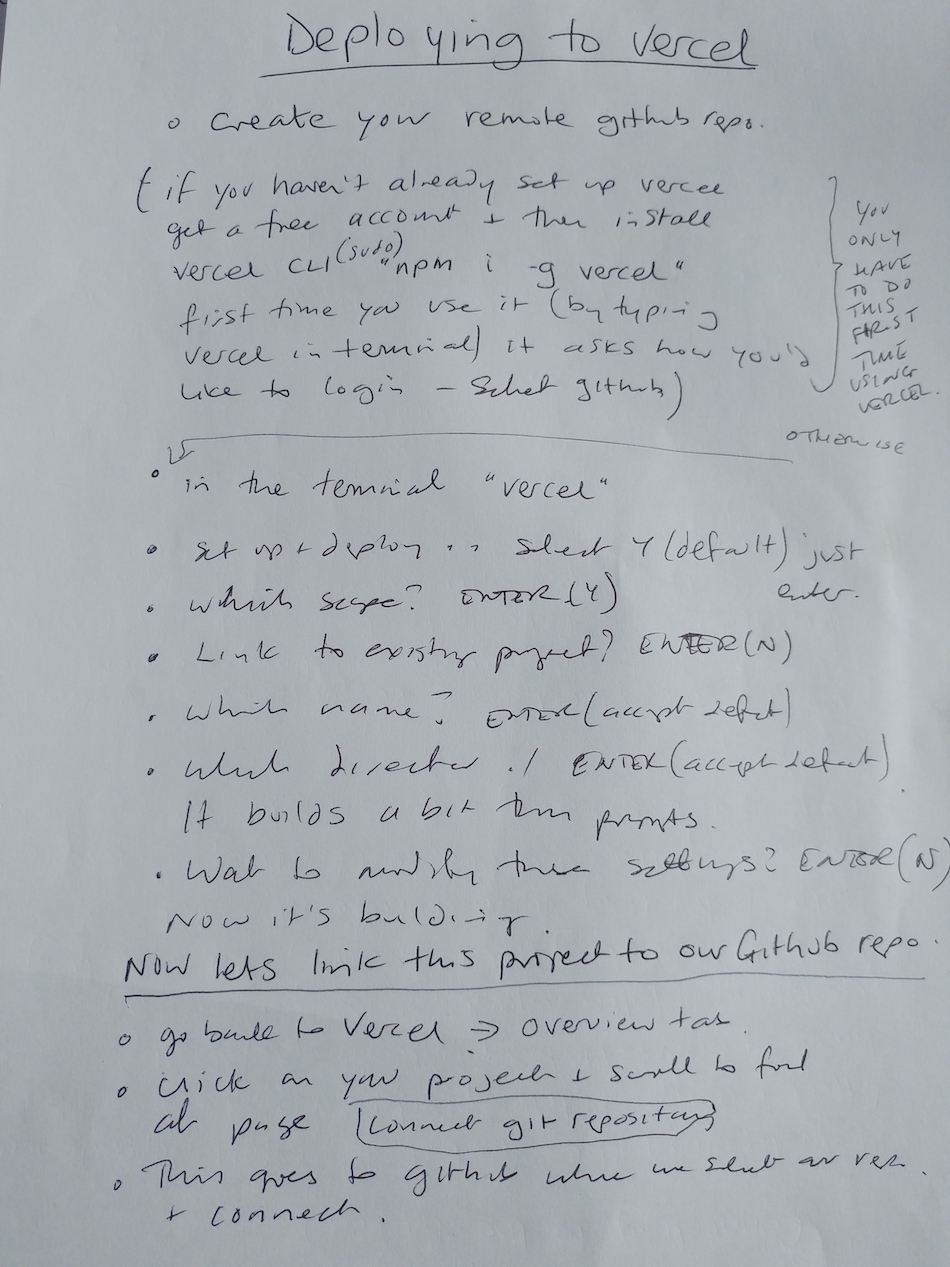 Deploying to Vercel
o Create your remote github repo.
(if you haven't already set up vercel
get a free account + then install
vercel CLI (sudo) "npm i -g vercel"
first time you use it (by typing
vercel in terminal) it asks how you'd
like to login - Select github)
YOU
ONLY
HAVE
TO DO
THIS
FIRST
TIME
USING
VERCEL.
OTHERWISE
• in the terminal "vercel"
• set up + deploy .. select Y (default) just
enter.
• which scope? ENTER (Y)
• Link to existing project? ENTER (N)
• which name? ENTER (accept default)
• which director ./ ENTER (accept default)
It builds a bit then prompts.
• Want to modify these settings? ENTER (N)
Now it's building.
NOW lets link this project to our Github repo.
o go back to Vercel → overview tab.
o click on your project + scroll to find
at page connect git repository
o This goes to github where we select our rep.
+ connect.